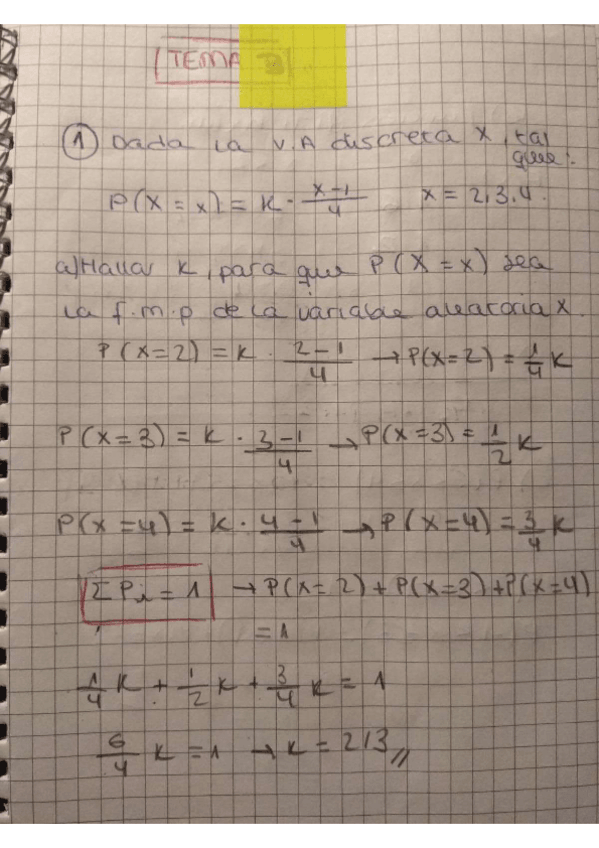 TEMA
① Dada la V.A discreta X, tal
que:
P(X = x) = K · (x-1)/4 x = 2,3,4.
a) Hallar K, para que P(X = x) sea
la f.m.p de la variable aleatoria X.
P(x=2) = K · (2-1)/4 → P(x=2) = 1/4 K
P(x=3) = K · (3-1)/4 → P(x=3) = 1/2 K
P(x=4) = K · (4-1)/4 → P(x=4) = 3/4 K
ΣPi = 1 → P(x=2) + P(x=3) + P(x=4)
= 1
1/4 K + 1/2 K + 3/4 K = 1
6/4 K = 1 → K = 2/3 //